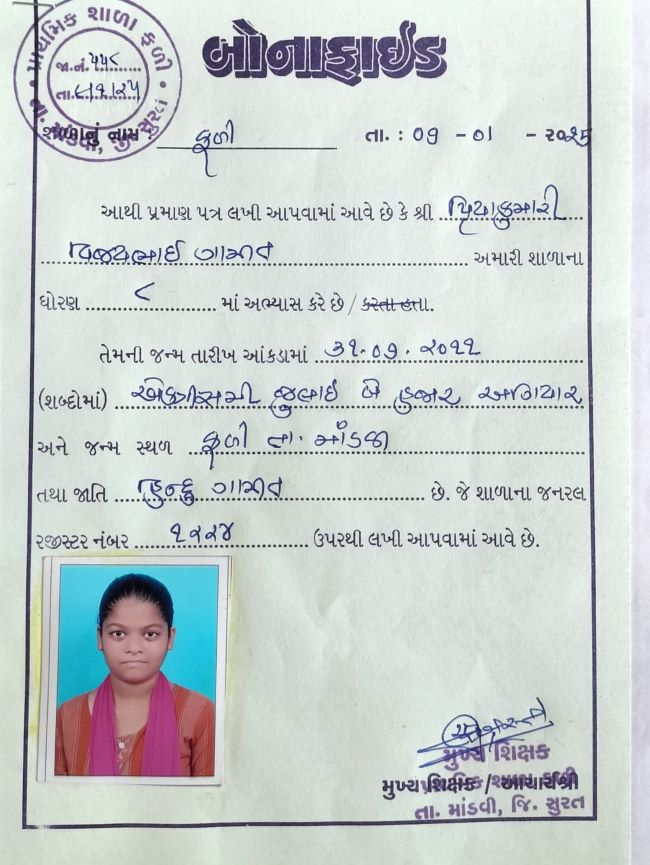 પ્રાથમિક શાળા ફળી
તા. માંડવી, જી. સુરત
જા.નં. ૫૫૮
તા. ૯/૧/૨૫
બોનાફાઈડ
શાળાનું નામ ફળી તા. : ૦૭ - ૦૧ - ૨૦૨૫
આથી પ્રમાણ પત્ર લખી આપવામાં આવે છે કે શ્રી પ્રિયાકુમારી
વિજયભાઈ ગામીત અમારી શાળાના
ધોરણ ૮ માં અભ્યાસ કરે છે / કરતા હતા.
તેમની જન્મ તારીખ આંકડામાં ૩૧.૦૭. ૨૦૧૧
(શબ્દોમાં) એકત્રીસમી જુલાઇ બે હજાર અગિયાર
અને જન્મ સ્થળ ફળી તા. માંડવી
તથા જાતિ હિન્દુ ગામીત છે. જે શાળાના જનરલ
રજીસ્ટર નંબર ૧૨૨૪ ઉપરથી લખી આપવામાં આવે છે.
મુખ્ય શિક્ષક
પ્રાથમિક શાળા ફળી
મુખ્ય શિક્ષક / આચાર્યશ્રી
તા. માંડવી, જિ. સુરત